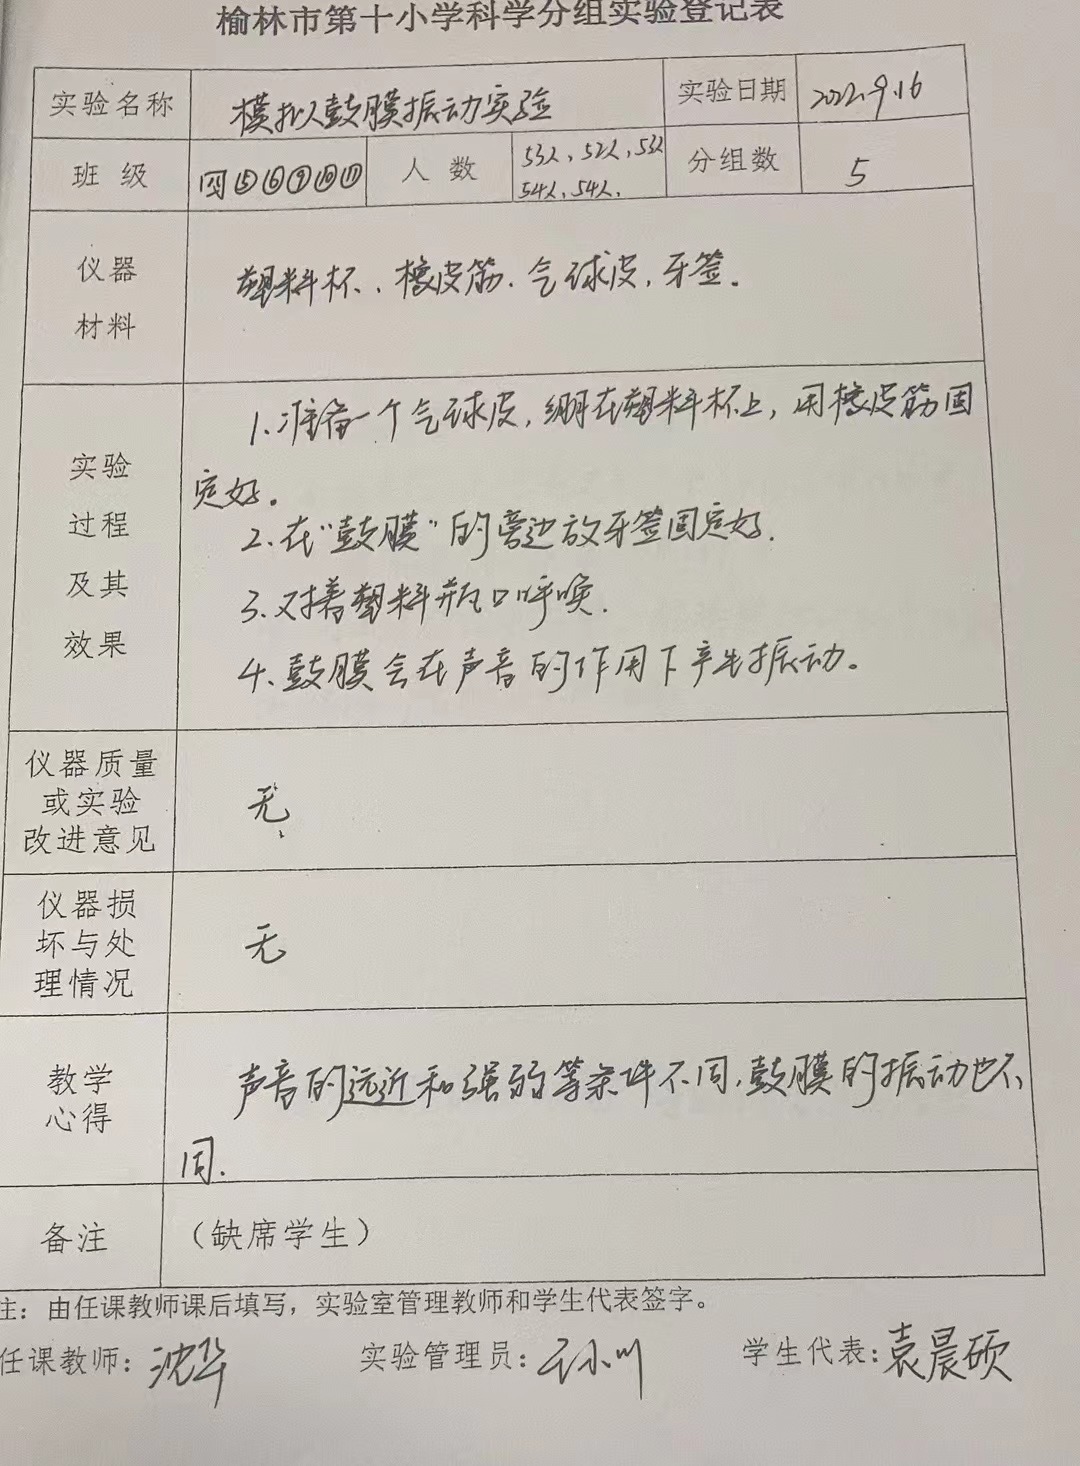 榆林市第十小学科学分组实验登记表
实验名称 模拟鼓膜振动实验 实验日期 2022.9.16
班 级 四⑤⑥⑨⑩⑪ 人 数 53人、52人、53人 54人、54人. 分组数 5
仪器
材料
塑料杯、橡皮筋、气球皮,牙签。
实验
过程
及其
效果
1.准备一个气球皮,绷在塑料杯上,用橡皮筋固
定好。
2.在“鼓膜”的旁边放牙签固定好.
3.对着塑料瓶口呼唤.
4.鼓膜会在声音的作用下产生振动。
仪器质量
或实验
改进意见
无
仪器损
坏与处
理情况
无
教学
心得
声音的远近和强弱等条件不同,鼓膜的振动也不
同.
备注 (缺席学生)
注:由任课教师课后填写,实验室管理教师和学生代表签字。
任课教师:沈华 实验管理员: 学生代表:袁晨硕